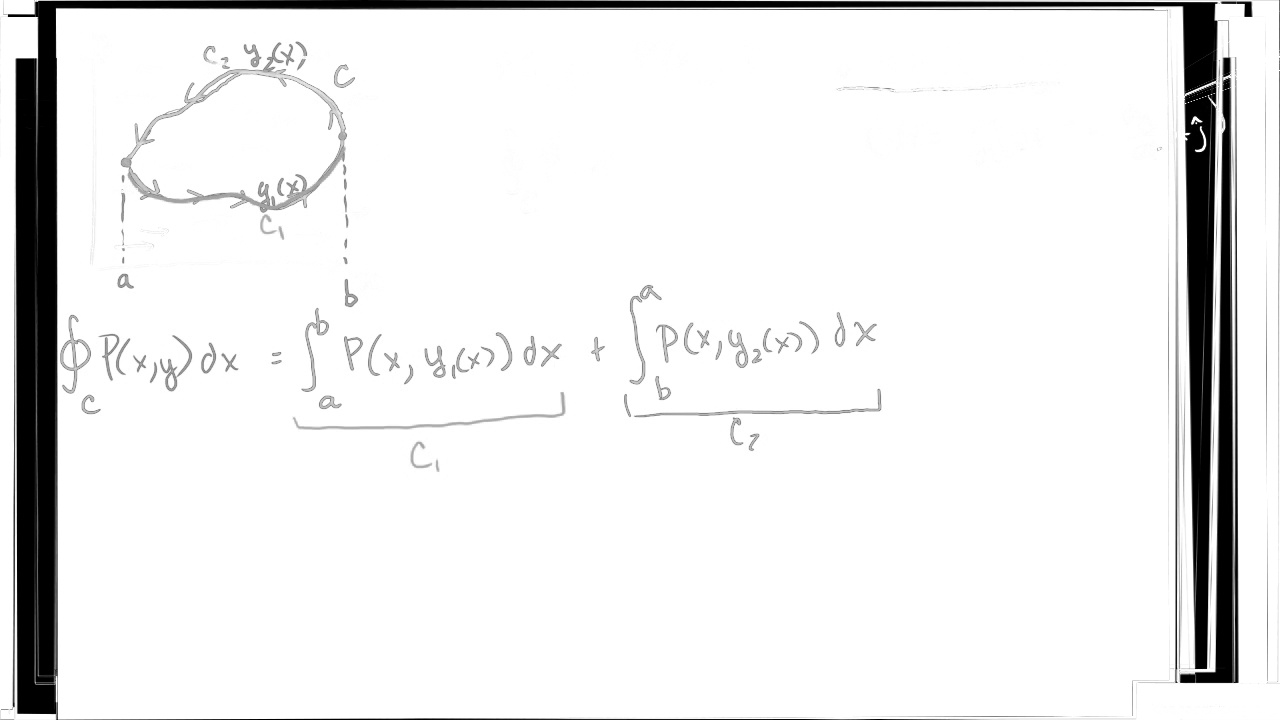 C₂ y₂(x) C
y₁(x)
C₁
a b
∮_C P(x,y) dx = ∫_a^b P(x, y₁(x)) dx + ∫_b^a P(x, y₂(x)) dx
C₁ C₂
+ĵ